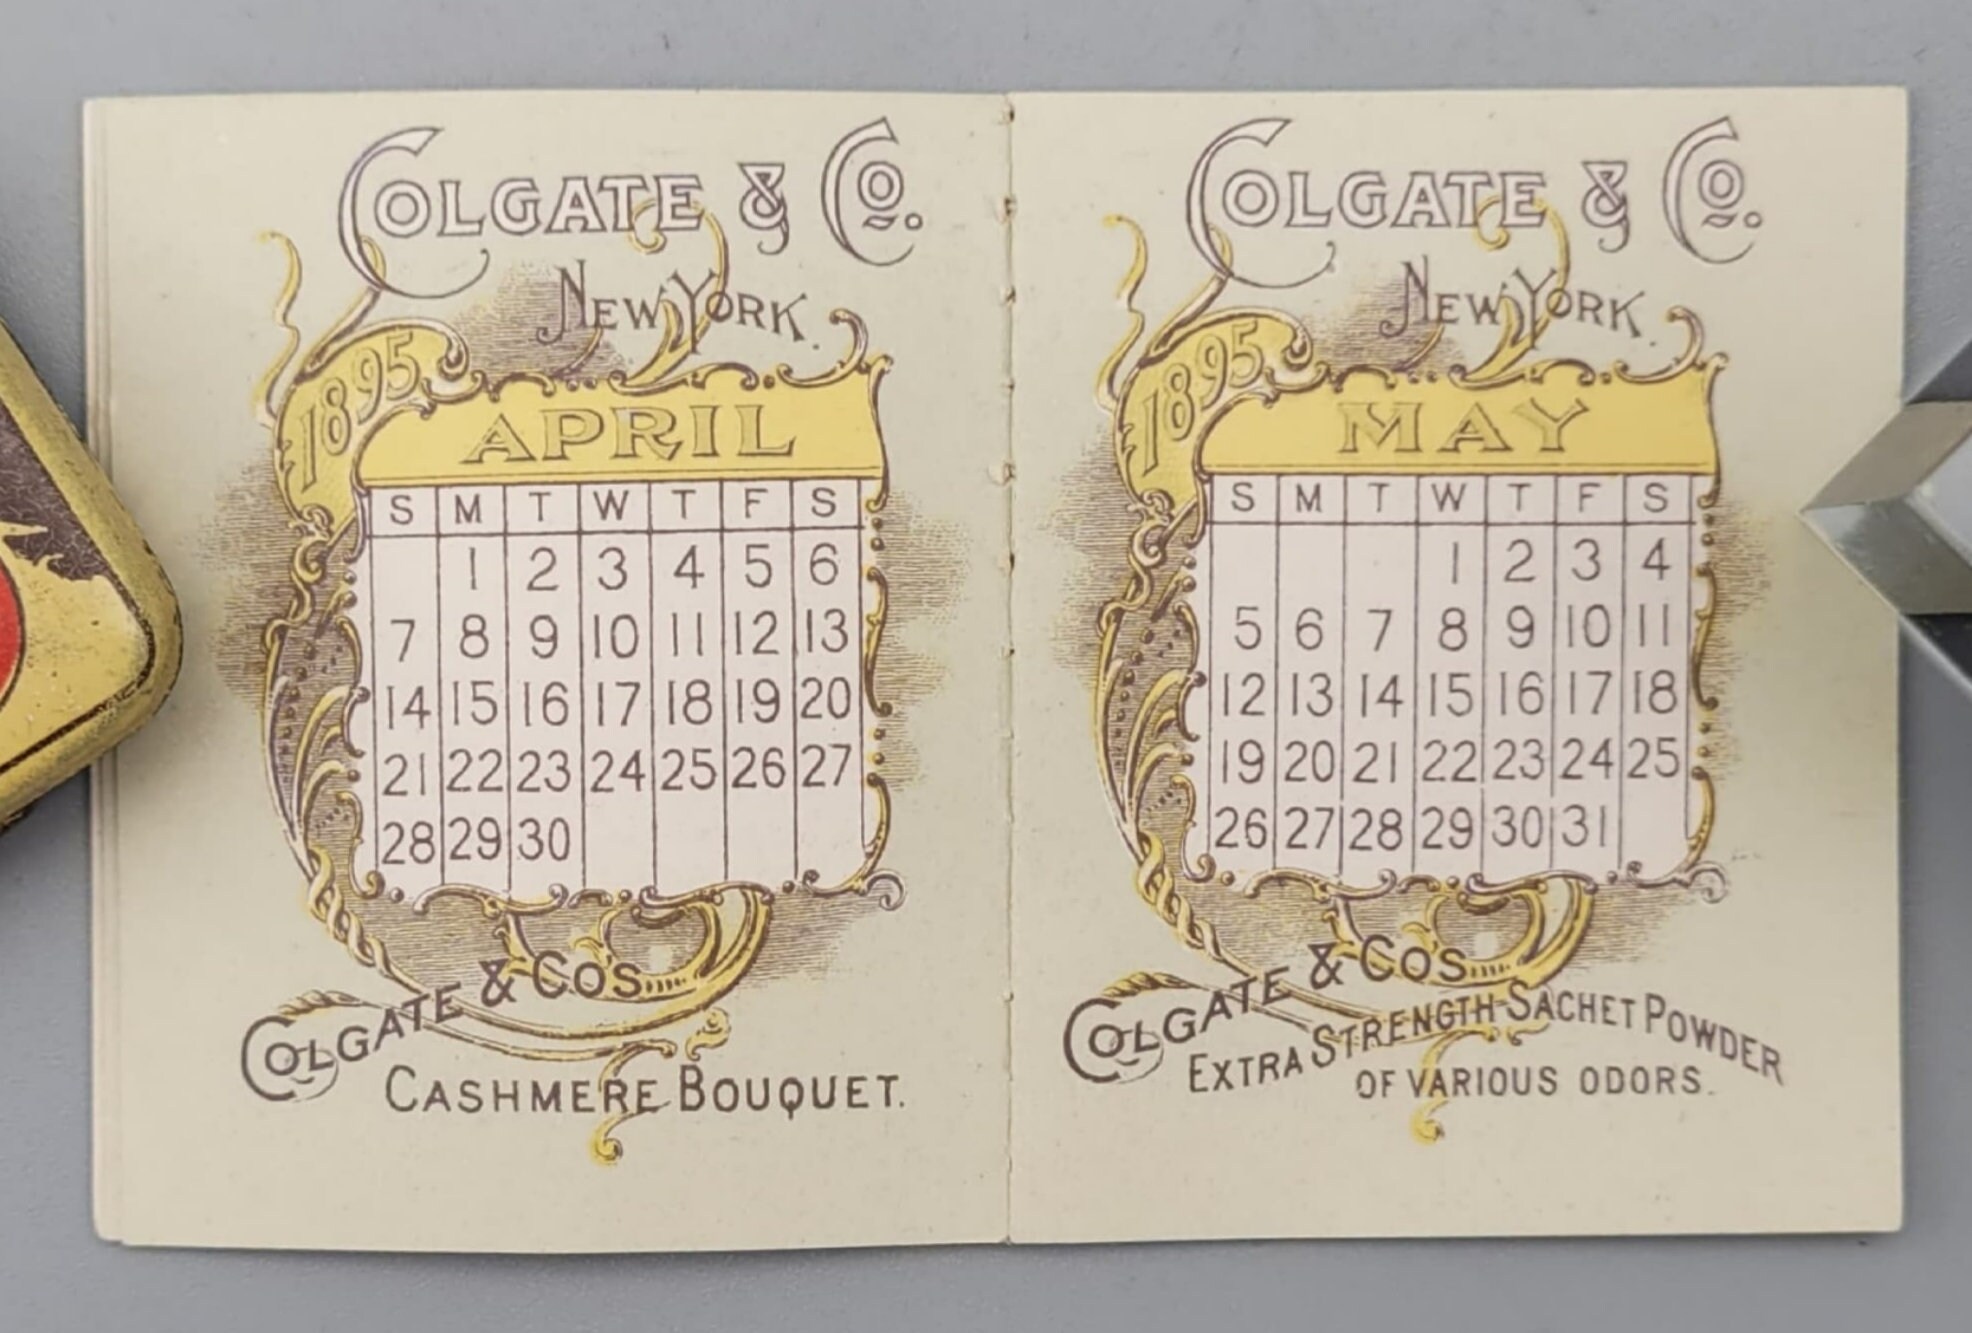 COLGATE & CO.
NEW YORK.
1895
APRIL
S M T W T F S
1 2 3 4 5 6
7 8 9 10 11 12 13
14 15 16 17 18 19 20
21 22 23 24 25 26 27
28 29 30
COLGATE & COS
CASHMERE BOUQUET.
COLGATE & CO.
NEW YORK.
1895
MAY
S M T W T F S
1 2 3 4
5 6 7 8 9 10 11
12 13 14 15 16 17 18
19 20 21 22 23 24 25
26 27 28 29 30 31
COLGATE & COS
EXTRA STRENGTH SACHET POWDER
OF VARIOUS ODORS.